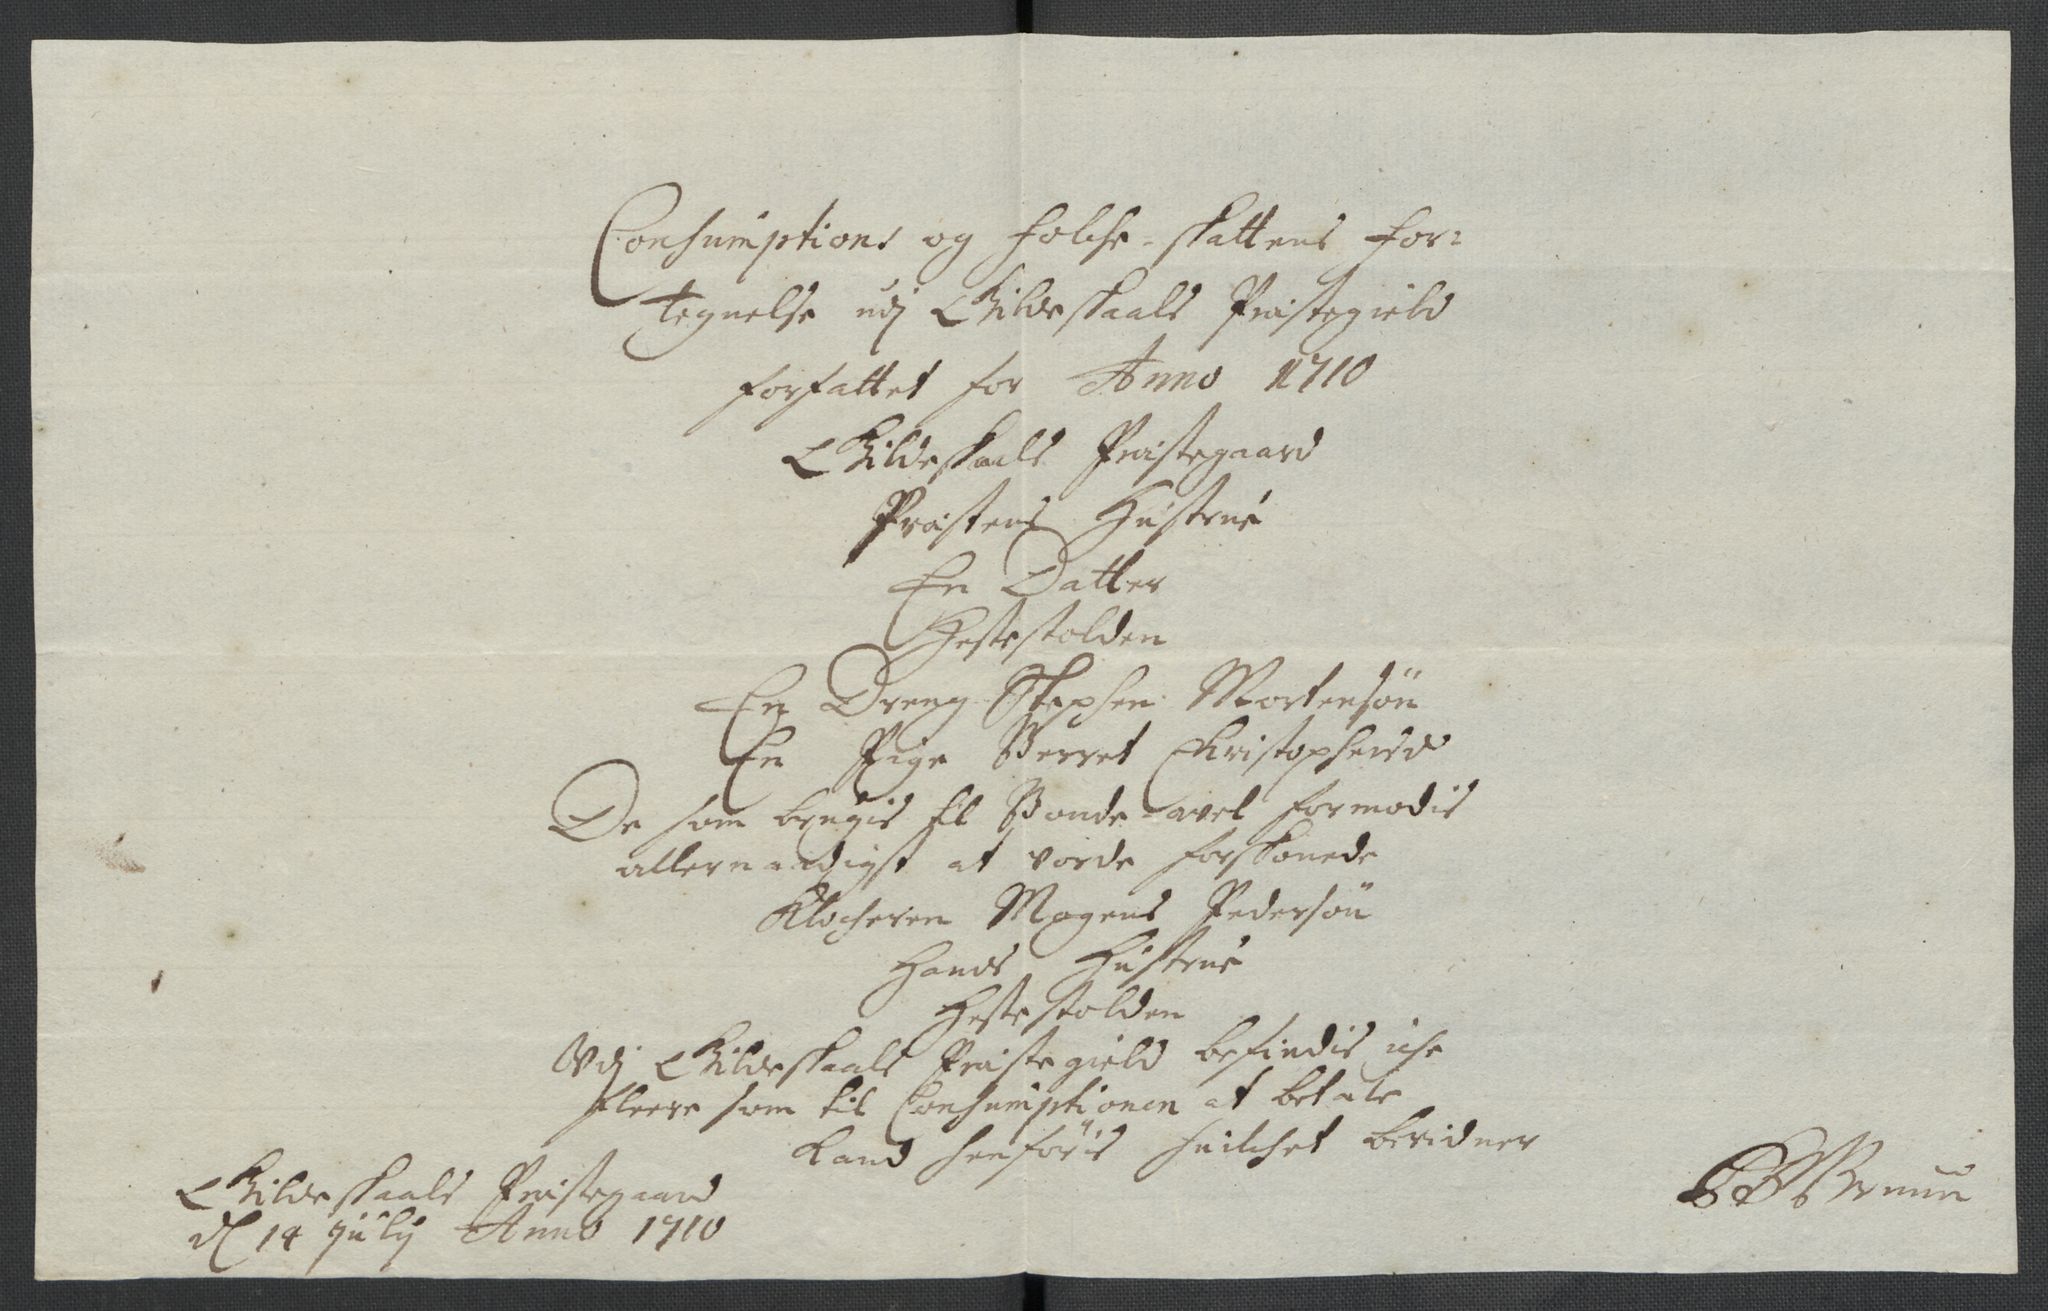 Consumptions og Folche-skattens for=
tegnelse udj Gildeskaals Præstegield
forfattet for Anno 1710
Gildeskaals Præstegaard
Præstens Hustrue
En Datter
Hestescolden
En Dreng Stephen Mortensøn
En Pige Berret Christophersd
De som brugis til Bonde-avel formodis
allernaadigst at vorde forskonede
Klocheren Mogens Pedersøn
Hands Hustrue
Hestescolden
Udj Gildeskaals Præstegield befindis iche
fleere som til Consumptionen at betale
kand henføris huilchet bevidner
Gildeskaals Præstegaard
d 14 Julij Anno 1710